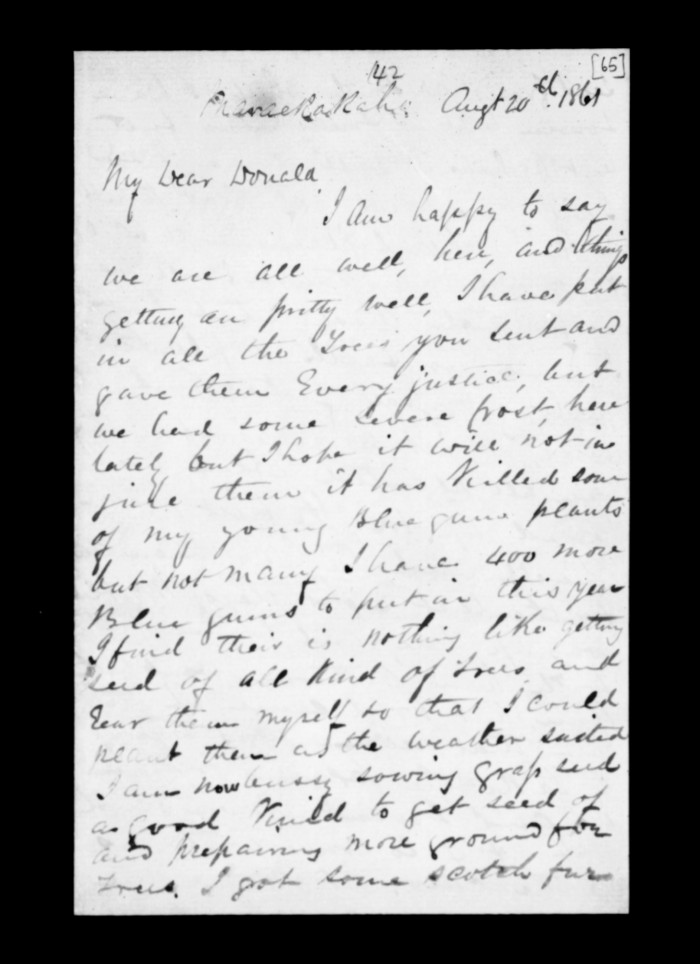 [65]
142
Augt 20th 1861
My Dear Donald
I am happy to say
we are all well, here, and things
getting on pritty well, I have put
in all the Trees you sent and
gave them Every justice, but
we had some severe frost, here
lately but I hope it will not in
jure them it has Killed some
of my young Blue gum plants
but not many I have 400 more
Blue gums to put in this year
I find their is nothing like getting
seed of all Kind of Trees and
rear them myself so that I could
plant them as the weather suited
I am now bussy sowing grass seed
a good Kind to get seed of
and prepairing more ground for
Trees. I got some scotch furs